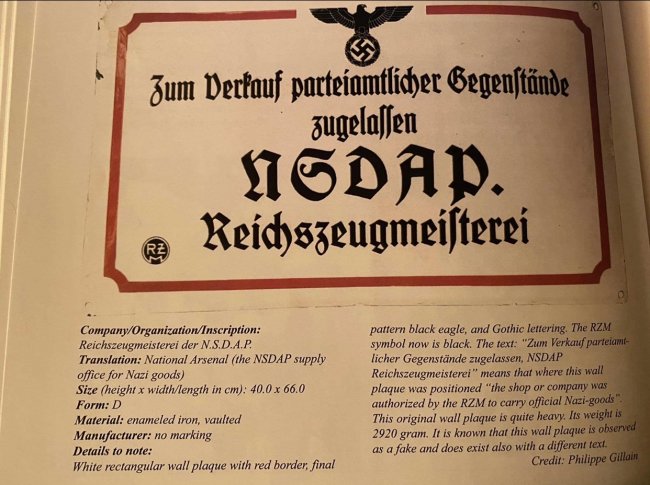 Zum Verkauf parteiamtlicher Gegenstände
zugelassen
NSDAP.
Reichszeugmeisterei
RZM
Company/Organization/Inscription:
Reichszeugmeisterei der N.S.D.A.P.
Translation: National Arsenal (the NSDAP supply
office for Nazi goods)
Size (height x width/length in cm): 40.0 x 66.0
Form: D
Material: enameled iron, vaulted
Manufacturer: no marking
Details to note:
White rectangular wall plaque with red border, final
pattern black eagle, and Gothic lettering. The RZM
symbol now is black. The text: "Zum Verkauf parteiamt-
licher Gegenstände zugelassen, NSDAP
Reichszeugmeisterei" means that where this wall
plaque was positioned "the shop or company was
authorized by the RZM to carry official Nazi-goods".
This original wall plaque is quite heavy. Its weight is
2920 gram. It is known that this wall plaque is observed
as a fake and does exist also with a different text.
Credit: Philippe Gillain